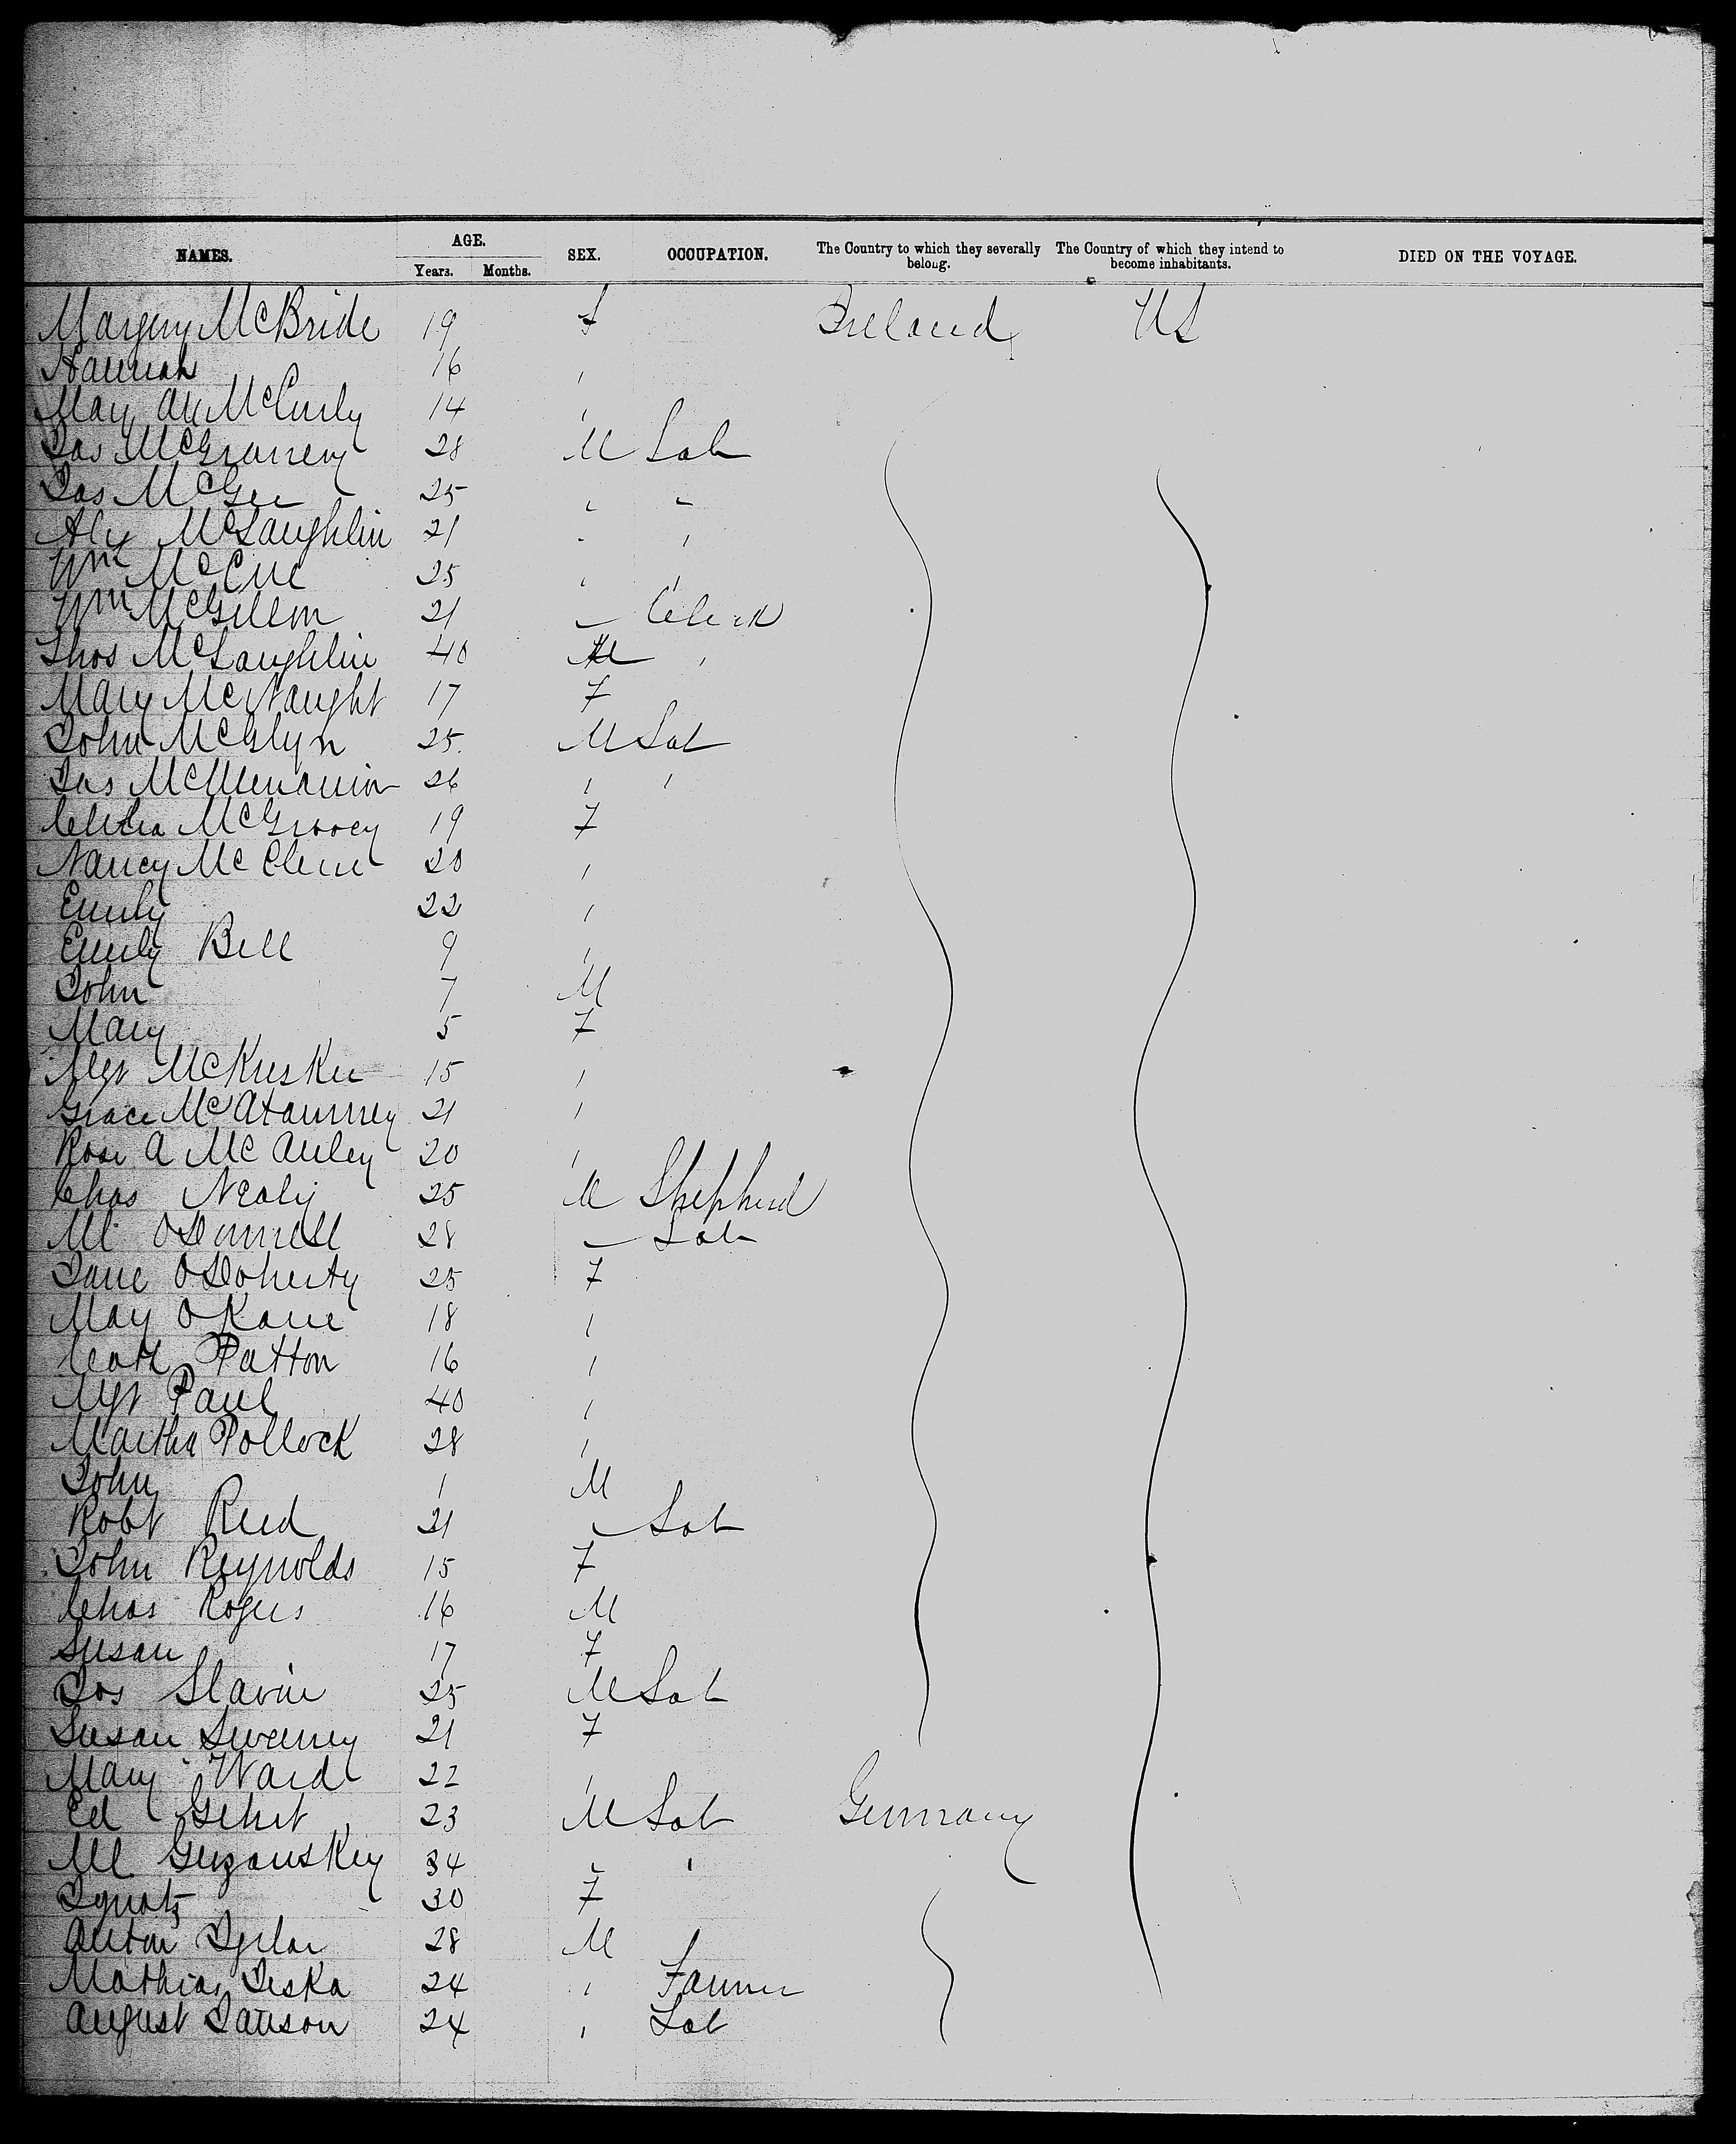 NAMES. AGE. SEX. OCCUPATION. The Country to which they severally belong. The Country of which they intend to become inhabitants. DIED ON THE VOYAGE.
Years. Months.
Margery McBride 19 f Ireland US
Hannah 16 "
Mary Ann McCurly 14 "
Jas McGranery 28 M Lab
Jas McGee 25 " "
Alex McLaughlin 21 " "
Wm McCue 25 " "
Wm McGillen 21 " Clerk
Thos McLaughlin 40 M "
Mary McNaught 17 F
John McGlyn 25 M Lab
Jas McMenamin 26 " "
Celia McGroovey 19 F
Nancy McClene 20 "
Emily 22 "
Emily Bell 9 "
John 7 M
Mary 5 F
Mgt McKusker 15 "
Grace McAtamney 21 "
Rose A McAuley 20 "
Chas Nealy 25 M Shepherd
Ml O'Donnell 28 " Lab
Jane O'Doherty 25 F
May O'Kane 18 "
Cath Patton 16 "
Mgt Paul 40 "
Martha Pollock 28 "
John 1 M
Robt Reed 21 " Lab
John Reynolds 15 F
Chas Rogers 16 M
Susan 17 F
Jos Slavin 25 M Lab
Susan Sweeney 21 F
Mary Ward 22 "
Ed Gehrt 23 M Lab Germany
Ml Guzanskey 34 " "
Ignatz 30 F
Anton 28 M
Mathias Jeska 24 " Farmer
August Janson 24 " Lab